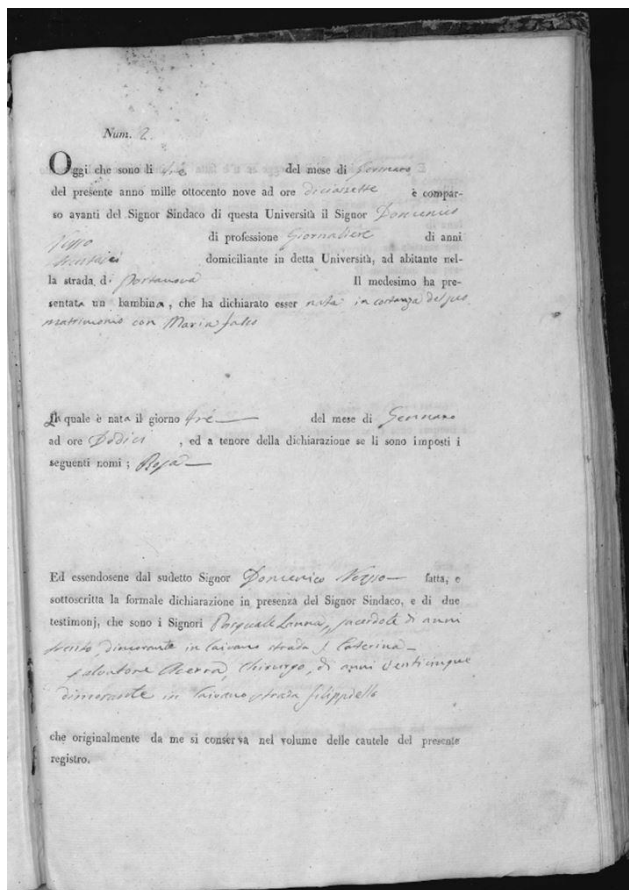 Num. 2.
Oggi che sono li tre del mese di Gennaro
del presente anno mille ottocento nove ad ore diciassette è compar-
so avanti del Signor Sindaco di questa Università il Signor Domenico
di professione Giornaliere di anni
domiciliante in detta Università, ad abitante nel-
la strada di Portanova Il medesimo ha pre-
sentata un bambina, che ha dichiarato esser nata in costanza del suo
matrimonio con Maria Falco
La quale è nata il giorno tré del mese di Gennaro
ad ore Dodici , ed a tenore della dichiarazione se li sono imposti i
seguenti nomi ; Rosa
Ed essendosene dal sudetto Signor Domenico fatta, e
sottoscritta la formale dichiarazione in presenza del Signor Sindaco, e di due
testimonj, che sono i Signori Pasquale Lanna, sacerdote di anni
trenta, dimorante in Caivano strada S. Caterina
Salvatore Acerra, Chirurgo, di anni venticinque
dimorante in Caivano strada
che originalmente da me si conserva nel volume delle cautele del presente
registro.